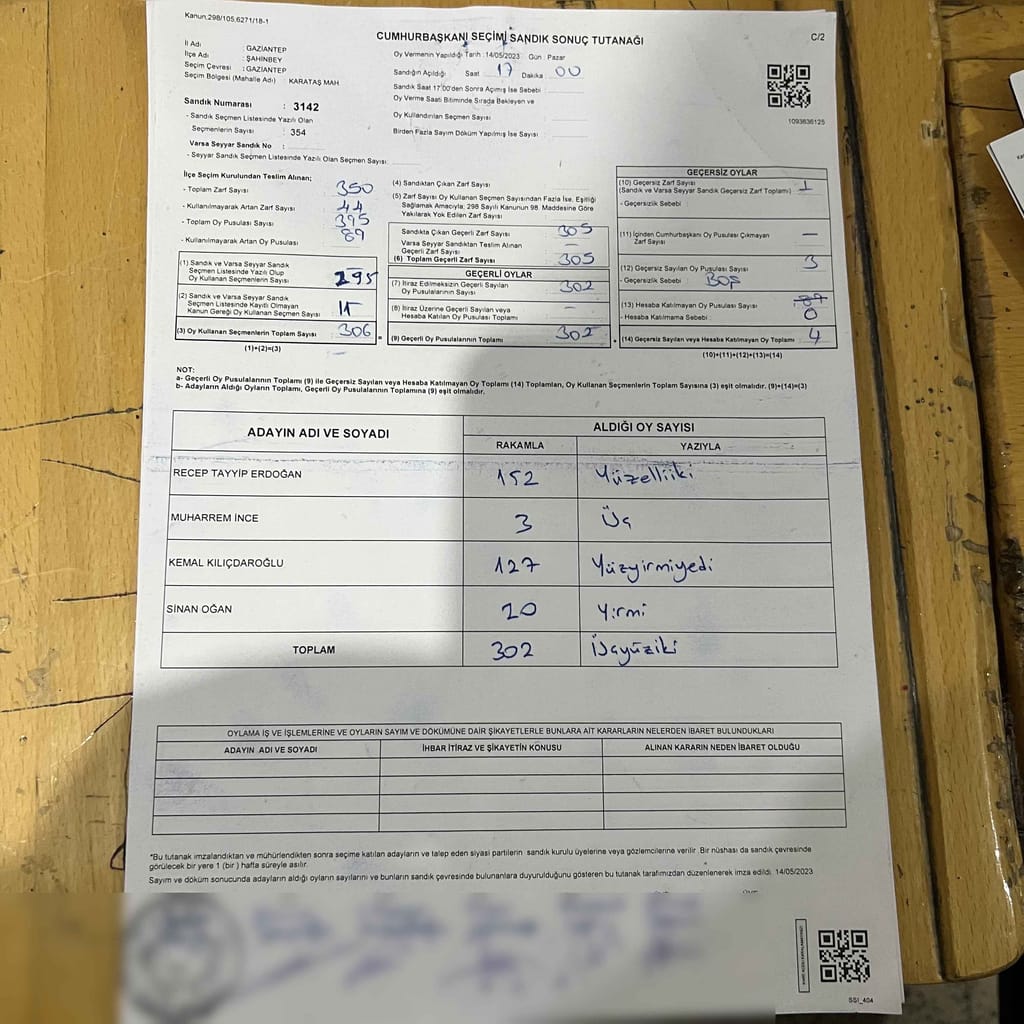 Kanun;298/105,6271/18-1
CUMHURBAŞKANI SEÇİMİ SANDIK SONUÇ TUTANAĞI
C/2
İl Adı : GAZİANTEP
İlçe Adı : ŞAHİNBEY
Seçim Çevresi : GAZİANTEP
Seçim Bölgesi (Mahalle Adı) : KARATAŞ MAH
Sandık Numarası : 3142
- Sandık Seçmen Listesinde Yazılı Olan
Seçmenlerin Sayısı : 354
Varsa Seyyar Sandık No :
- Seyyar Sandık Seçmen Listesinde Yazılı Olan Seçmen Sayısı:
Oy Vermenin Yapıldığı Tarih :14/05/2023 Gün : Pazar
Sandığın Açıldığı Saat 17 Dakika 00
Sandık Saat 17:00'den Sonra Açımış İse Sebebi :
Oy Verme Saati Bitiminde Sırada Bekleyen ve
Oy Kullandırılan Seçmen Sayısı :
Birden Fazla Sayım Döküm Yapılmış İse Sayısı :
1093636125
İlçe Seçim Kurulundan Teslim Alınan;
- Toplam Zarf Sayısı : 350
- Kullanılmayarak Artan Zarf Sayısı : 44
- Toplam Oy Pusulası Sayısı : 395
- Kullanılmayarak Artan Oy Pusulası : 89
(1) Sandık ve Varsa Seyyar Sandık
Seçmen Listesinde Yazılı Olup
Oy Kullanan Seçmenlerin Sayısı : 295
(2) Sandık ve Varsa Seyyar Sandık
Seçmen Listesinde Kayıtlı Olmayan
Kanun Gereği Oy Kullanan Seçmen Sayısı : 11
(3) Oy Kullanan Seçmenlerin Toplam Sayısı : 306
(1)+(2)=(3)
=
(4) Sandıktan Çıkan Zarf Sayısı :
(5) Zarf Sayısı Oy Kullanan Seçmen Sayısından Fazla İse, Eşitliği
Sağlamak Amacıyla; 298 Sayılı Kanunun 98. Maddesine Göre
Yakılarak Yok Edilen Zarf Sayısı :
Sandıkta Çıkan Geçerli Zarf Sayısı : 305
Varsa Seyyar Sandıktan Teslim Alınan
Geçerli Zarf Sayısı : —
(6) Toplam Geçerli Zarf Sayısı : 305
GEÇERLİ OYLAR
(7) İtiraz Edilmeksizin Geçerli Sayılan
Oy Pusulalarının Sayısı : 302
(8) İtiraz Üzerine Geçerli Sayılan veya
Hesaba Katılan Oy Pusulası Toplamı : —
(9) Geçerli Oy Pusulalarının Toplamı : 302
+
GEÇERSİZ OYLAR
(10) Geçersiz Zarf Sayısı
(Sandık ve Varsa Seyyar Sandık Geçersiz Zarf Toplamı) : 1
- Geçersizlik Sebebi :
(11) İçinden Cumhurbaşkanı Oy Pusulası Çıkmayan
Zarf Sayısı : —
(12) Geçersiz Sayılan Oy Pusulası Sayısı : 3
- Geçersizlik Sebebi : BOŞ
(13) Hesaba Katılmayan Oy Pusulası Sayısı : 89
- Hesaba Katılmama Sebebi : 0
(14) Geçersiz Sayılan veya Hesaba Katılmayan Oy Toplamı : 4
(10)+(11)+(12)+(13)=(14)
NOT:
a- Geçerli Oy Pusulalarının Toplamı (9) ile Geçersiz Sayılan veya Hesaba Katılmayan Oy Toplamı (14) Toplamları, Oy Kullanan Seçmenlerin Toplam Sayısına (3) eşit olmalıdır. (9)+(14)=(3)
b- Adayların Aldığı Oyların Toplamı, Geçerli Oy Pusulalarının Toplamına (9) eşit olmalıdır.
ADAYIN ADI VE SOYADI
ALDIĞI OY SAYISI
RAKAMLA YAZIYLA
RECEP TAYYİP ERDOĞAN 152 Yüzelliiki
MUHARREM İNCE 3 Üç
KEMAL KILIÇDAROĞLU 127 Yüzyirmiyedi
SİNAN OĞAN 20 Yirmi
TOPLAM 302 Üçyüziki
OYLAMA İŞ VE İŞLEMLERİNE VE OYLARIN SAYIM VE DÖKÜMÜNE DAİR ŞİKAYETLERLE BUNLARA AİT KARARLARIN NELERDEN İBARET BULUNDUKLARI
ADAYIN ADI VE SOYADI İHBAR İTİRAZ VE ŞİKAYETİN KONUSU ALINAN KARARIN NEDEN İBARET OLDUĞU
*Bu tutanak imzalandıktan ve mühürlendikten sonra seçime katılan adayların ve talep eden siyasi partilerin sandık kurulu üyelerine veya gözlemcilerine verilir. Bir nüshası da sandık çevresinde
görülecek bir yere 1 (bir ) hafta süreyle asılır.
Sayım ve döküm sonucunda adayların aldığı oyların sayılarını ve bunların sandık çevresinde bulunanlara duyurulduğunu gösteren bu tutanak tarafımızdan düzenlenerek imza edildi. 14/05/2023
SSI_404